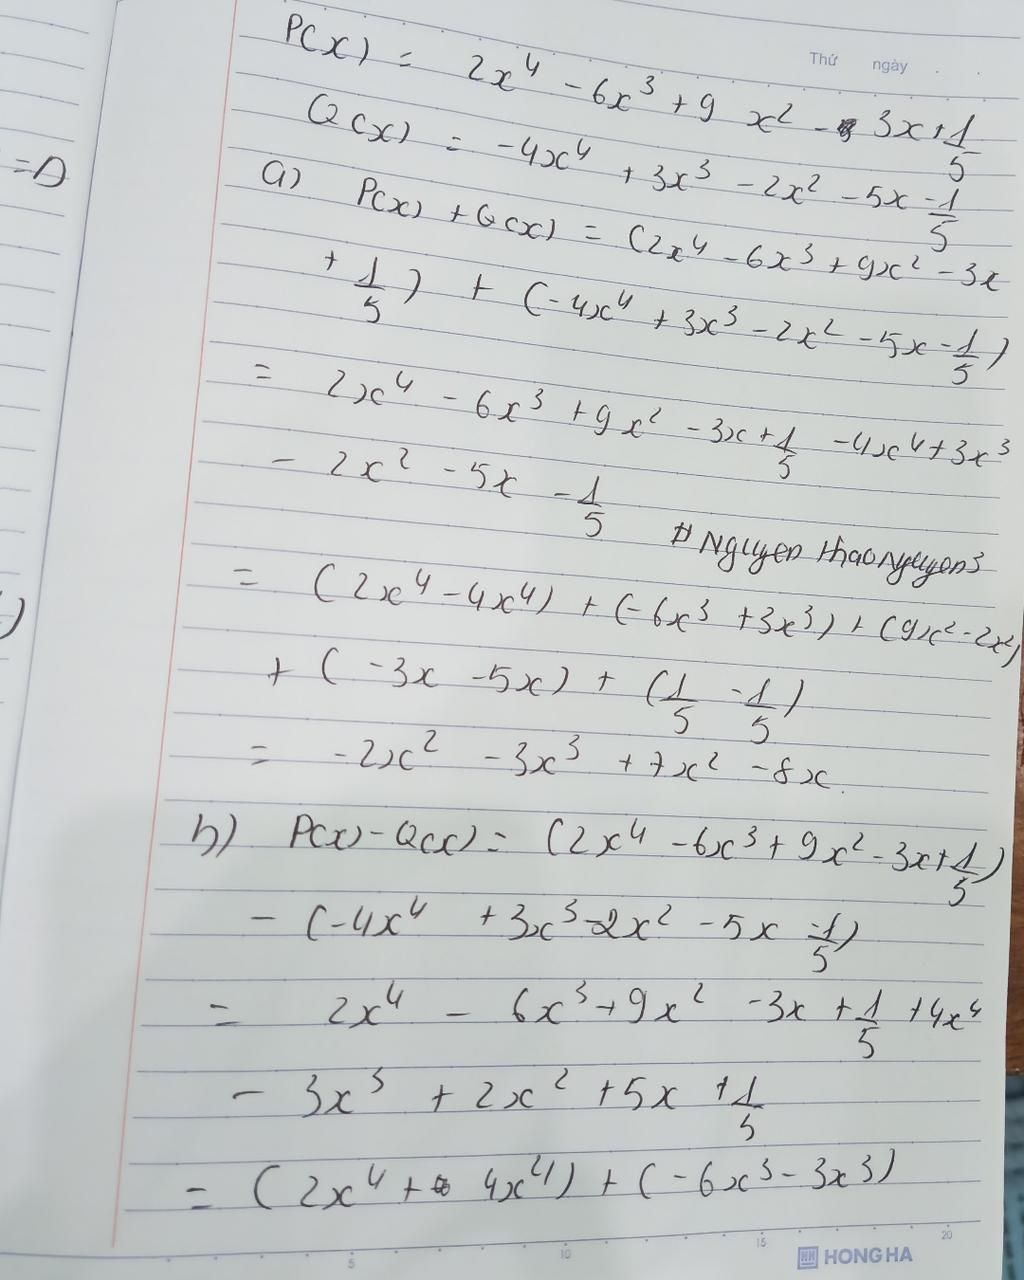 Thứ ngày . .
P(x) = 2x⁴ - 6x³ + 9 x² - 3x + 1/5
Q(x) = -4x⁴ + 3x³ - 2x² - 5x - 1/5
a) P(x) + Q(x) = (2x⁴ - 6x³ + 9x² - 3x
+ 1/5) + (-4x⁴ + 3x³ - 2x² - 5x - 1/5)
= 2x⁴ - 6x³ + 9x² - 3x + 1/5 - 4x⁴ + 3x³
- 2x² - 5x - 1/5
# Nguyen thao nguyen3
= (2x⁴ - 4x⁴) + (-6x³ + 3x³) + (9x² - 2x²)
+ (-3x - 5x) + (1/5 - 1/5)
= -2x² - 3x³ + 7x² - 8x.
b) P(x) - Q(x) = (2x⁴ - 6x³ + 9x² - 3x + 1/5)
- (-4x⁴ + 3x³ - 2x² - 5x - 1/5)
= 2x⁴ - 6x³ + 9x² - 3x + 1/5 + 4x⁴
- 3x³ + 2x² + 5x + 1/5
= (2x⁴ + 4x⁴) + (-6x³ - 3x³)
5 10 15 20
HONG HA